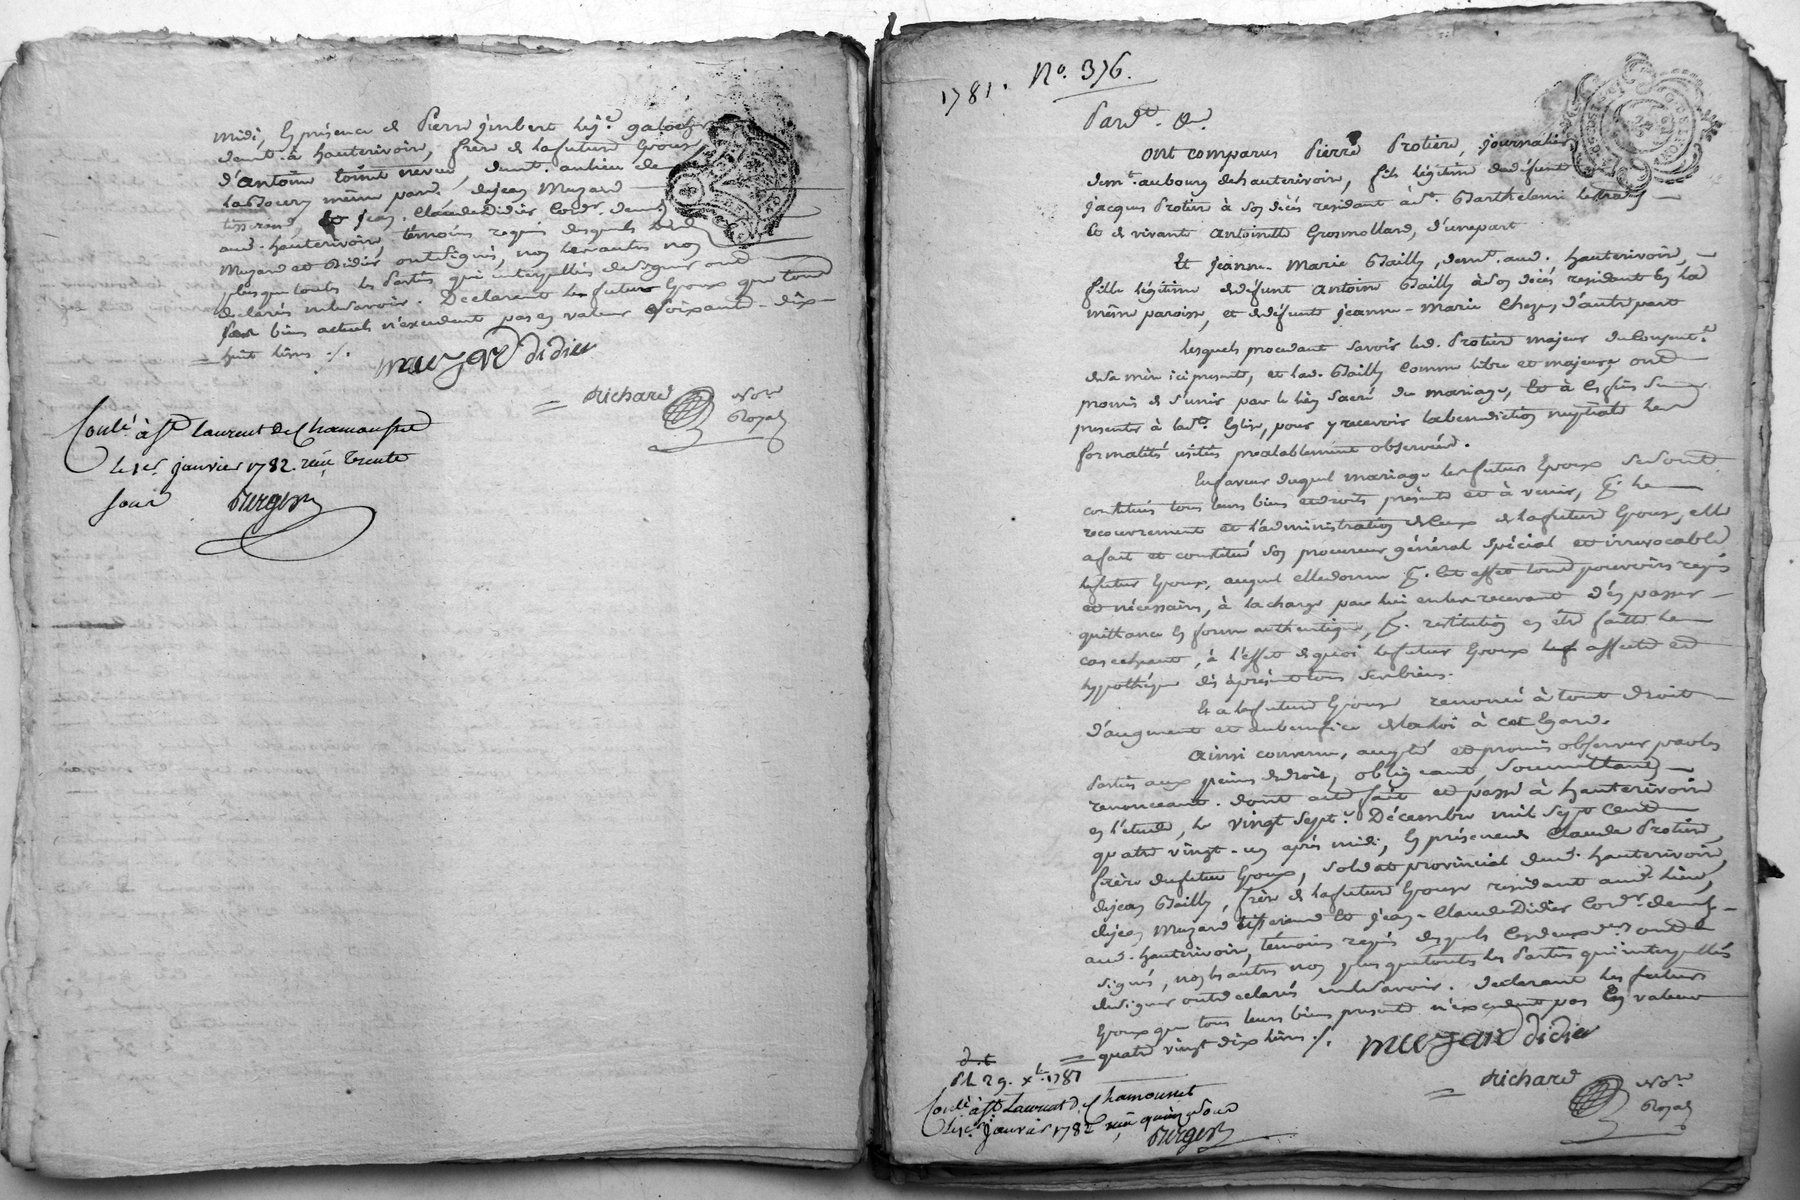 midi, En présence de Pierre jimbert
demt. à hauterivoir, frère de la future Epouse
d'Antoine toint neveu, demt. au lieu de
même parse. de jean Muzard
tisserand, Et jean-Claude Didier Cordr. demt.
aud. hauterivoir, témoins requis desquels lesd.
Muzard et Didier ont signés, non les autres non
plus que toutes les Parties qui interpellées de signer ont
declarés ne le savoir. Declarent les futurs Epoux que tous
leurs biens actuels n'excedent pas en valeur soixante-dix-
huit livres ./.
muzard didier
Richard Nore Royal
Conlé à St. Laurent de Chamousset
le 1er janvier 1782. reçu trente
sous
1781. No. 376.
Pardt. &c.
Ont comparus Pierre Protière, journalier
demt. au bourg de hauterivoir, fils légitime de défunt
jacques Protière à son décès residant à St. Barthelemi Lestra
Et de vivante Antoinette Grosmollard, d'une part
Et Jeanne-Marie Bailly, demt. aud. hauterivoir,
fille légitime de défunt Antoine Bailly à son décès residant En lad.
même paroisse, et de défunte jeanne-Marie d'autre part
Lesquels procedant savoir led. Protière majeur du Consentt.
de sa mère ici presente, et lad. Bailly comme libre et majeure ont
promis de s'unir par le lien sacré du mariage, Et à ces fins se
presenter à lad. Eglise, pour y recevoir la benediction nuptiale les
formalités usitées préalablement observées.
En faveur duquel mariage les futurs Epoux se sont
constitués tous leurs biens et droits présents et à venir, pr. le
recouvrement et l'administration de ceux de la future Epouse, elle
a fait et constitué son procureur général spécial et irrevocable
le futur Epoux, auquel elle donne pr. cet effet tous pouvoirs requis
et nécessaires, à la charge par lui en les recevant d'en passer
quittance En forme authentique, pr. restitution en être faitte le
cas echeant, à l'effet de quoi le futur Epoux affecte et
hypothéque dès àprésent tous ses biens.
Et a la future Epouse renoncé à tout droit
d'augment et au benefice de la loi à cet Egard.
Ainsi convenu, accepté et promis observer par les
Parties aux peines de droit, obligeant, soumettant,
renonceant. dont acte fait et passé à hauterivoir
en l'étude, le vingt sept. Décembre mil sept Cent
quatre vingt-un après midi, En présence de Claude Protière,
frère du futur Epoux, soldat provincial demt. hauterivoir,
de jean Bailly, frère de la future Epouse residant aud. lieu,
de jean Muzard tisserand Et jean-Claude Didier Cordr. demt.
aud. hauterivoir, témoins requis desquels les deux ders. ont
signés, non les autres non plus que toutes les Parties qui interpellées
de signer ont declarés ne le savoir. Declarent les futurs
Epoux que tous leurs biens presents n'excedent pas En valeur
quatre vingt dix livres ./.
muzard didier
Richard Nore Royal
29. xbre. 1781
Conlé à St. Laurent de Chamousset
le 1er janvier 1782 reçu quinze sous